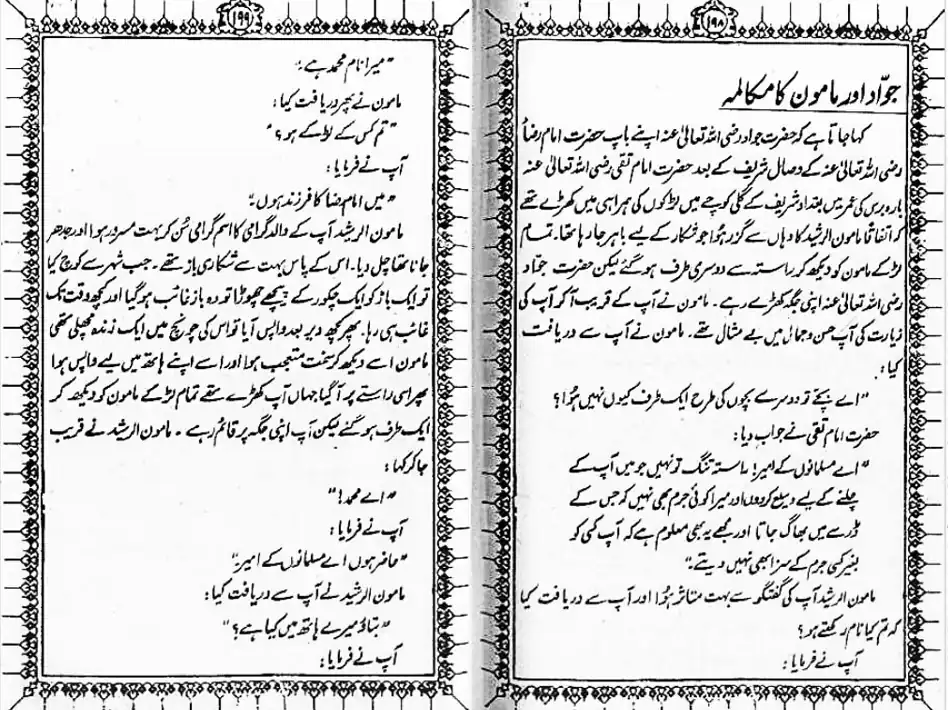 ۱۹۸
جوّاد اور مامون کا مکالمہ
کہا جاتا ہے کہ حضرت جواد رضی اللہ تعالیٰ عنہ اپنے باپ حضرت امام رضا
رضی اللہ تعالیٰ عنہ کے وصال شریف کے بعد حضرت امام تقی رضی اللہ تعالیٰ عنہ
بارہ برس کی عمر میں بغداد شریف کے گلی کوچے میں لڑکوں کی ہمراہی میں کھڑے تھے
کہ اتفاقاً مامون الرشید کا وہاں سے گزر ہوا جو شکار کے لیے باہر جا رہا تھا۔ تمام
لڑکے مامون کو دیکھ کر راستہ سے دوسری طرف ہو گئے لیکن حضرت جوّاد
رضی اللہ تعالیٰ عنہ اپنی جگہ کھڑے رہے۔ مامون نے آپ کے قریب آ کر آپ کی
زیارت کی آپ حسن و جمال میں بے مثال تھے۔ مامون نے آپ سے دریافت
کیا:
"اے بچے تو دوسرے بچوں کی طرح ایک طرف کیوں نہیں ہُوا؟
حضرت امام تقی نے جواب دیا:
"اے مسلمانوں کے امیر! راستہ تنگ تو نہیں جو میں آپ کے
چلنے کے لیے وسیع کر دوں اور میرا کوئی جرم بھی نہیں کہ جس کے
ڈر سے میں بھاگ جاتا اور مجھے یہ بھی معلوم ہے کہ آپ کسی کو
بغیر کسی جرم کے سزا بھی نہیں دیتے۔"
مامون الرشید آپ کی گفتگو سے بہت متاثر ہُوا اور آپ سے دریافت کیا
کہ تم کیا نام رکھتے ہو؟
آپ نے فرمایا:
۱۹۹
"میرا نام محمد ہے۔"
مامون نے پھر دریافت کیا:
"تم کس کے لڑکے ہو؟"
آپ نے فرمایا:
"میں امام رضا کا فرزند ہوں۔"
مامون الرشید آپ کے والد گرامی کا اسم گرامی سُن کر بہت مسرور ہوا اور جدھر
جانا تھا چل دیا۔ اس کے پاس بہت سے شکاری باز تھے۔ جب شہر سے کوچ کیا
تو ایک باز کو ایک چکور کے پیچھے چھوڑا تو وہ باز غائب ہو گیا اور کچھ وقت تک
غائب ہی رہا۔ پھر کچھ دیر بعد واپس آیا تو اس کی چونچ میں ایک زندہ مچھلی تھی
مامون اسے دیکھ کر سخت متعجب ہوا اور اسے اپنے ہاتھ میں لیے واپس ہوا
پھر اسی راستے پر آ گیا جہاں آپ کھڑے تھے تمام لڑکے مامون کو دیکھ کر
ایک طرف ہو گئے لیکن آپ اپنی جگہ پر قائم رہے۔ مامون الرشید نے قریب
جا کر کہا:
"اے محمد!"
آپ نے فرمایا:
"حاضر ہوں اے مسلمانوں کے امیر۔"
مامون الرشید نے آپ سے دریافت کیا:
"بتاؤ میرے ہاتھ میں کیا ہے؟"
آپ نے فرمایا: